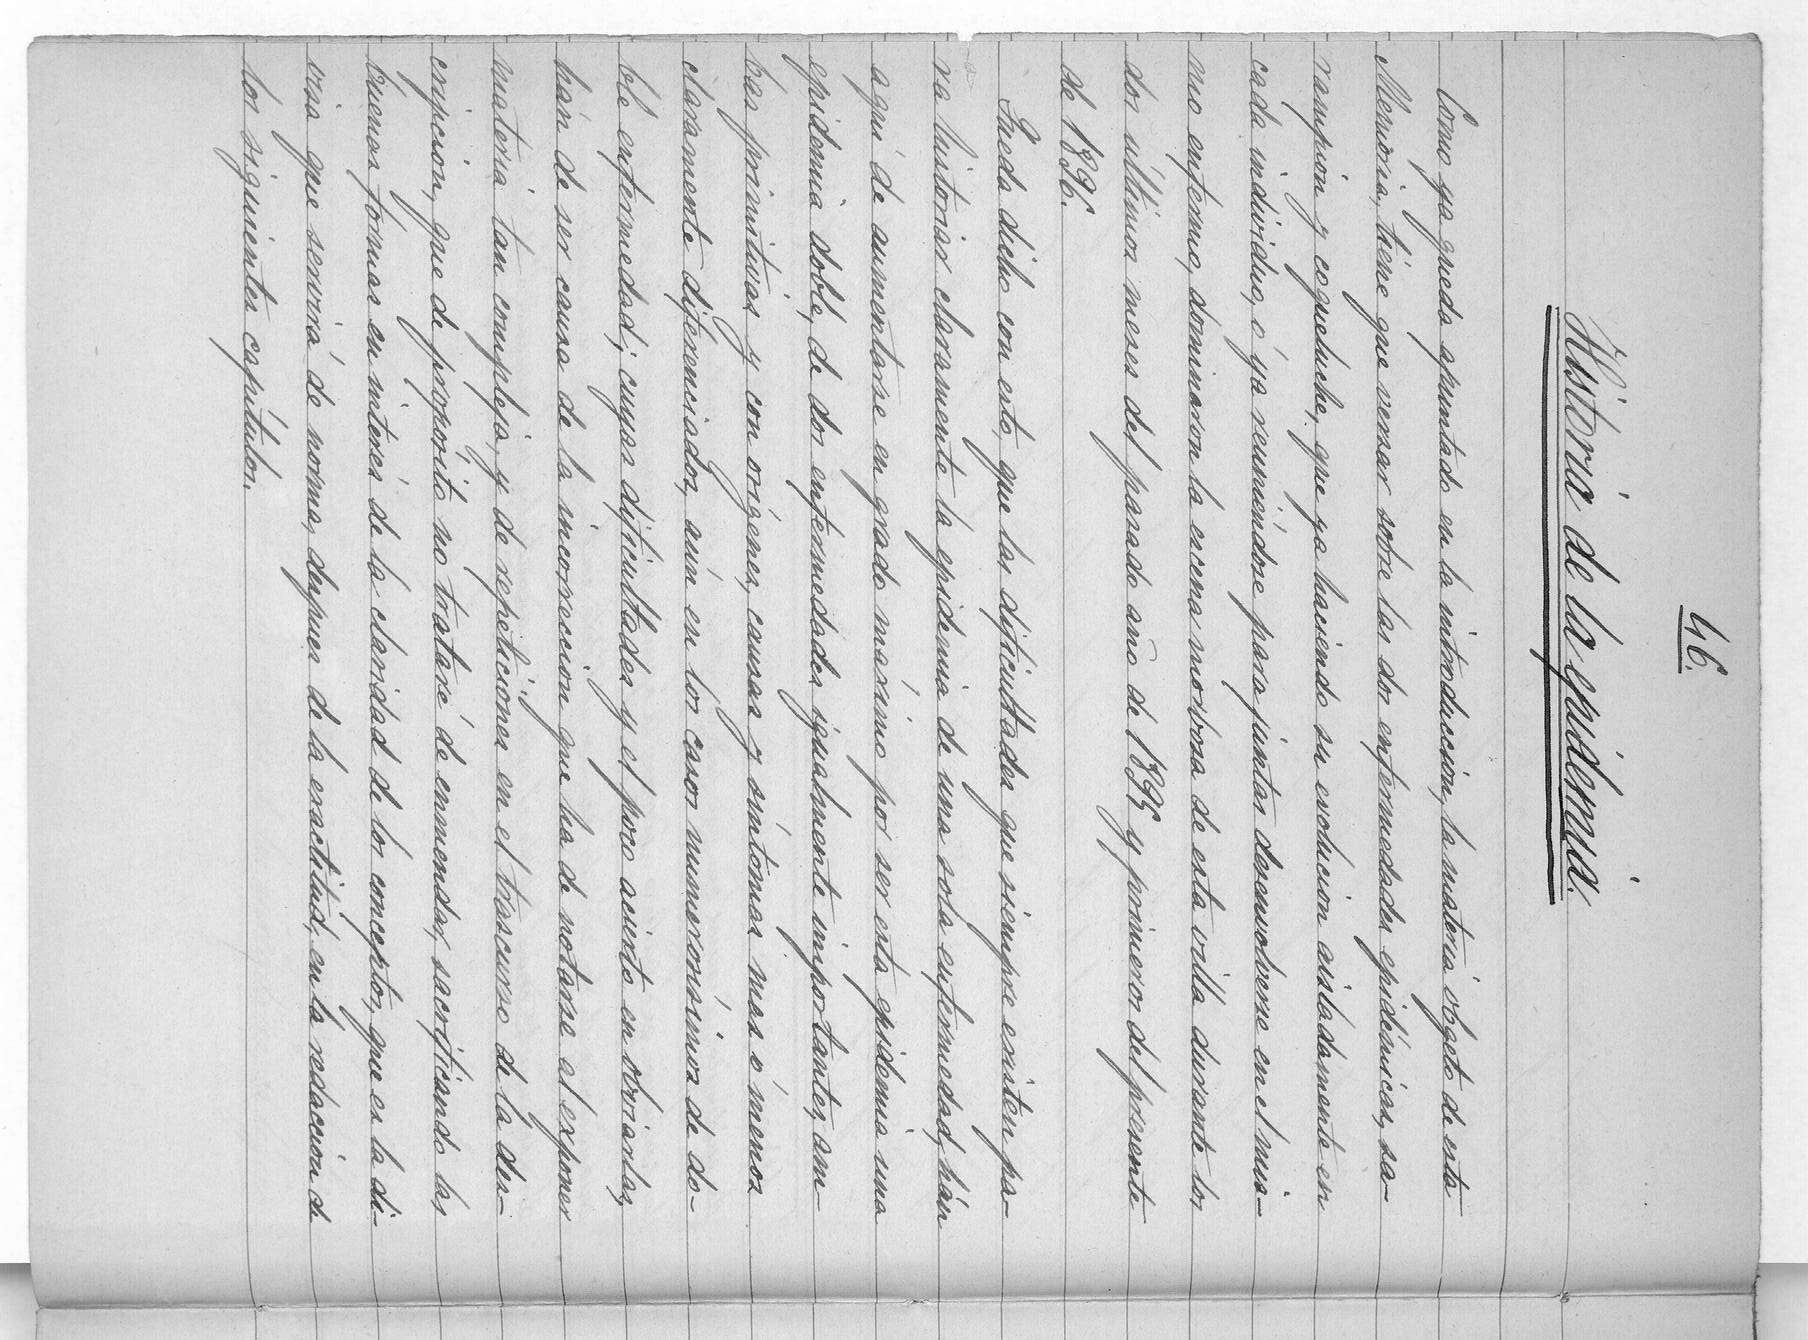 46.
Historia de la epidemia.
Como ya queda apuntado en la introduccion, la materia objeto de esta
Memoria, tiene que versar sobre las dos enfermedades epidémicas, sa-
rampion y coqueluche, que ya haciendo su evolucion aisladamente en
cada individuo, ó ya reuniéndose para juntas desenvolverse en el mis-
mo enfermo, dominaron la escena morbosa de esta villa durante los
dos últimos meses del pasado año de 1895 y primeros del presente
de 1896.
Queda dicho con esto, que las dificultades que siempre existen pa-
ra historiar claramente la epidemia de una sola enfermedad, hán
aqui de aumentarse en grado máximo por ser esta epidemia una
epidemia doble, de dos enfermedades igualmente importantes, am-
bas primitivas y con orígenes, causas y síntomas mas ó menos
claramente diferenciados, aún en los casos numerosísimos de do-
ble enfermedad; cuyas dificultades y el poco acierto en obviarlas,
hán de ser causa de la incorreccion que ha de notarse al exponer
materia tan compleja, y de repeticiones en el trascurso de la des-
cripcion, que de propósito no trataré de enmendar, sacrificando las
buenas formas en interés de la claridad de los conceptos, que es la di-
visa que servirá de norma, despues de la exactitud, en la redaccion de
los siguientes capítulos.